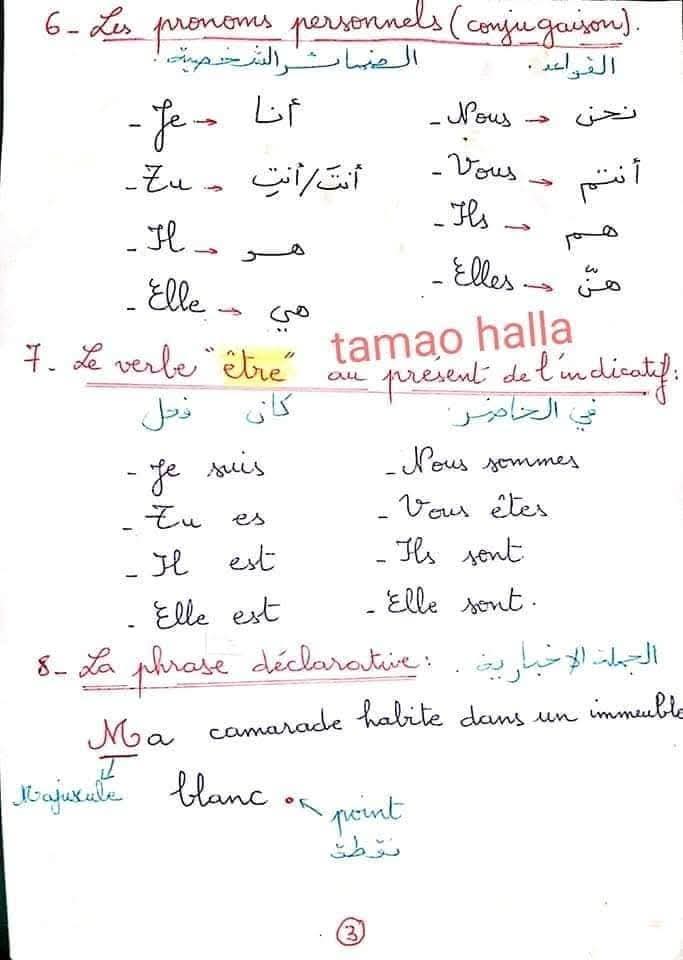 6- Les pronoms personnels (conjugaison).
الضمائر الشخصية. القواعد.
- Je → أنا
- Tu → أنتَ/أنتِ
- Il → هو
- Elle → هي
- Nous → نحن
- Vous → أنتم
- Ils → هم
- Elles → هنّ
tamao halla
7- Le verbe "être" au présent de l'indicatif:
فعل كان في الحاضر
- Je suis
- Tu es
- Il est
- Elle est
- Nous sommes
- Vous êtes
- Ils sont
- Elle sont.
8- La phrase déclarative: الجملة الإخبارية.
Ma camarade habite dans un immeuble
Majuscule blanc. point
نقطة
3